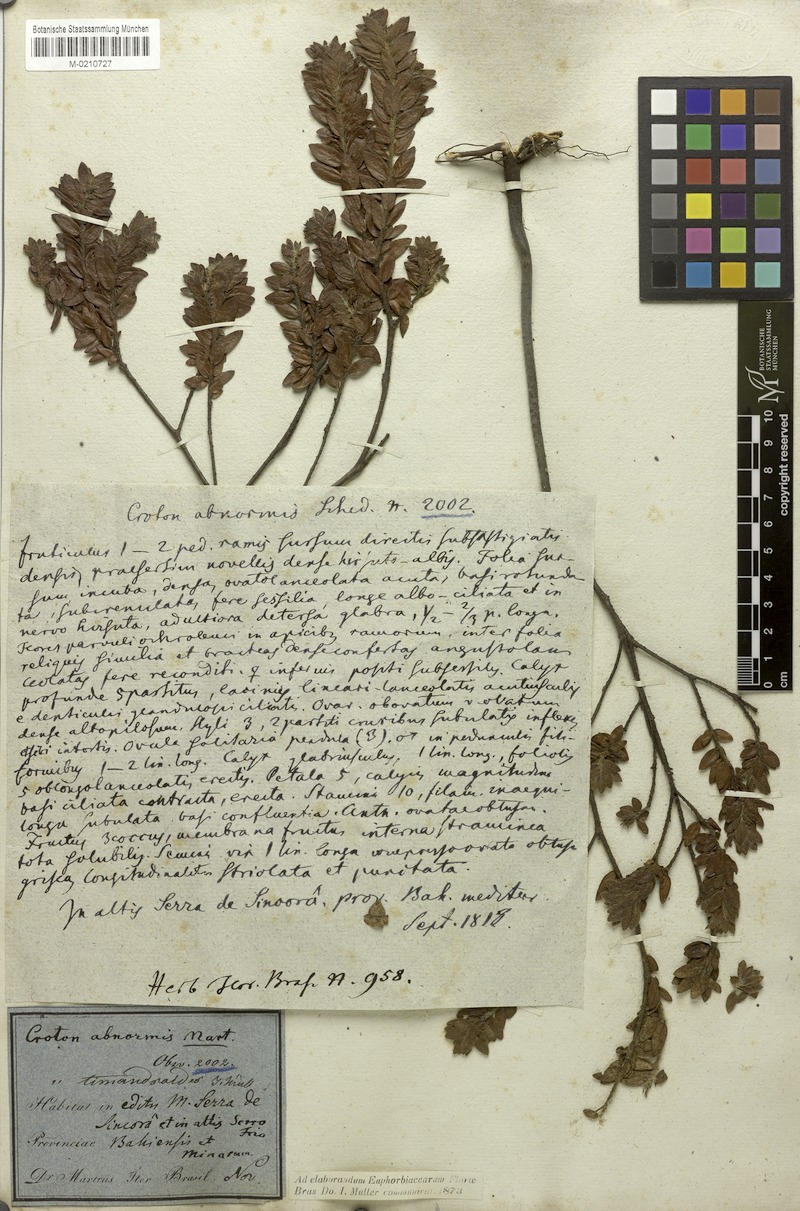 Botanische Staatssammlung München
M-0210727
BOTANISCHE
STAATSSAMMLUNG
MÜNCHEN
0 1 2 3 4 5 6 7 8 9 10
copyright reserved
Croton abnormis Sched. n. 2002.
fruticulus 1 — 2 ped. ramis sursum directis subfastigiatis
densis, praesertim novellis dense hirsuto-albis. Folia sur-
sum incuba, densa, ovatolanceolata acuta, basi rotunda-
ta, subcrenulata, fere sessilia, longe albo-ciliata et in
nervo hirsuta, adultiora detersa glabra, 1/2 — 2/3 p. longa.
Flores parvuli ochroleuci in apicibus ramorum, inter folia
reliquis similia et bracteas dense confertas angustolan
ceolatas fere reconditi. ♀ infernis positi subsessiles. Calyx
profunde 5partitus, laciniis lineari-lanceolatis acutiusculis
e denticulis glandulosis ciliatis. Ovar. obovatum v. ovatum
dense albopilosum. Styli 3, 2partiti cruribus subulatis inflexis
intortis. Ovula solitaria pendula (3). ♂ in pedunculis fili-
formibus 1 — 2 lin. long. Calyx glabriusculus, 1 lin. long., foliolis
5 oblongolanceolatis erectis. Petala 5, calycis magnitudine
basi ciliata contracta, erecta. Stamina 10, filam. inaequi-
longa subulata basi confluentia. Anth. ovatae obtusae.
Fructus 3coccus, membrana fructus interna straminea
tota solubilis. Semina vix 1 lin. longa compressoovata obtusa
grisea longitudinaliter striolata et punctata.
In altis Serra de Sincorâ. prov. Bah. mediter.
Sept. 1818.
Herb. Flor. Bras. n. 958.
Croton abnormis Mart.
Obs. 2002.
" timandroides J. Müll.
Habitat in editis M. Serra de
Sincorâ et in altis Serro
Frio
Provinciae Bahiensis et
Minarum
Dr. Martius Iter Brasil. Nov.
Ad elaborandum Euphorbiacearum Florae
Bras Do. I. Muller communicat. 1873